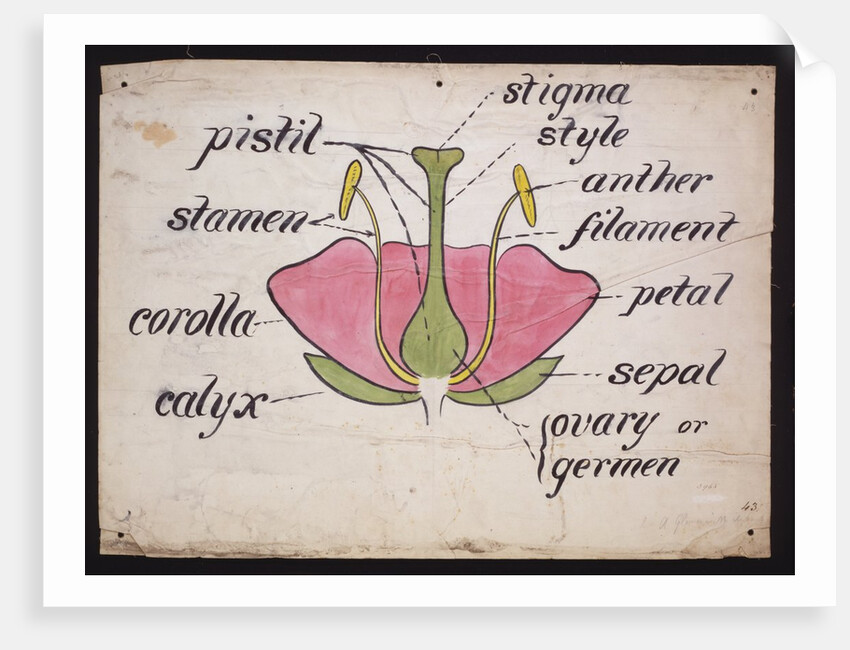 stigma
pistil
style
anther
stamen
filament
petal
corolla
sepal
calyx
ovary or
germen
43.